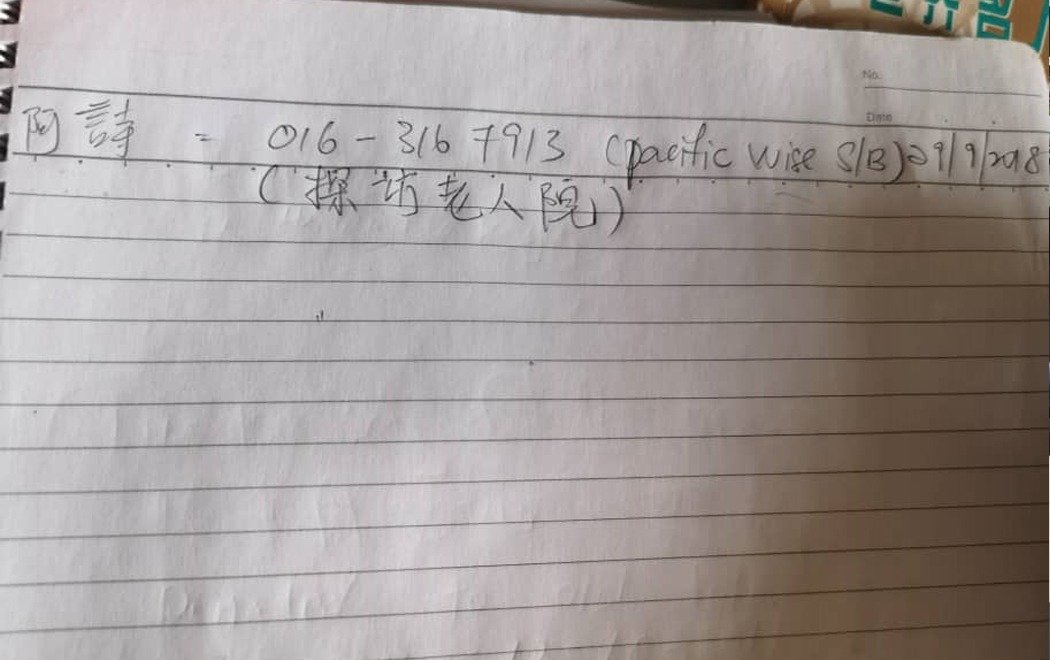 No.
Date
阿詩 = 016-316 7913 (pacific wise S/B) 29/9/2018
(探访老人院)